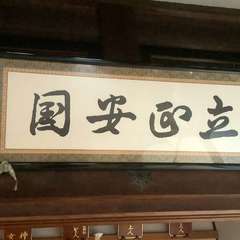 立正安国